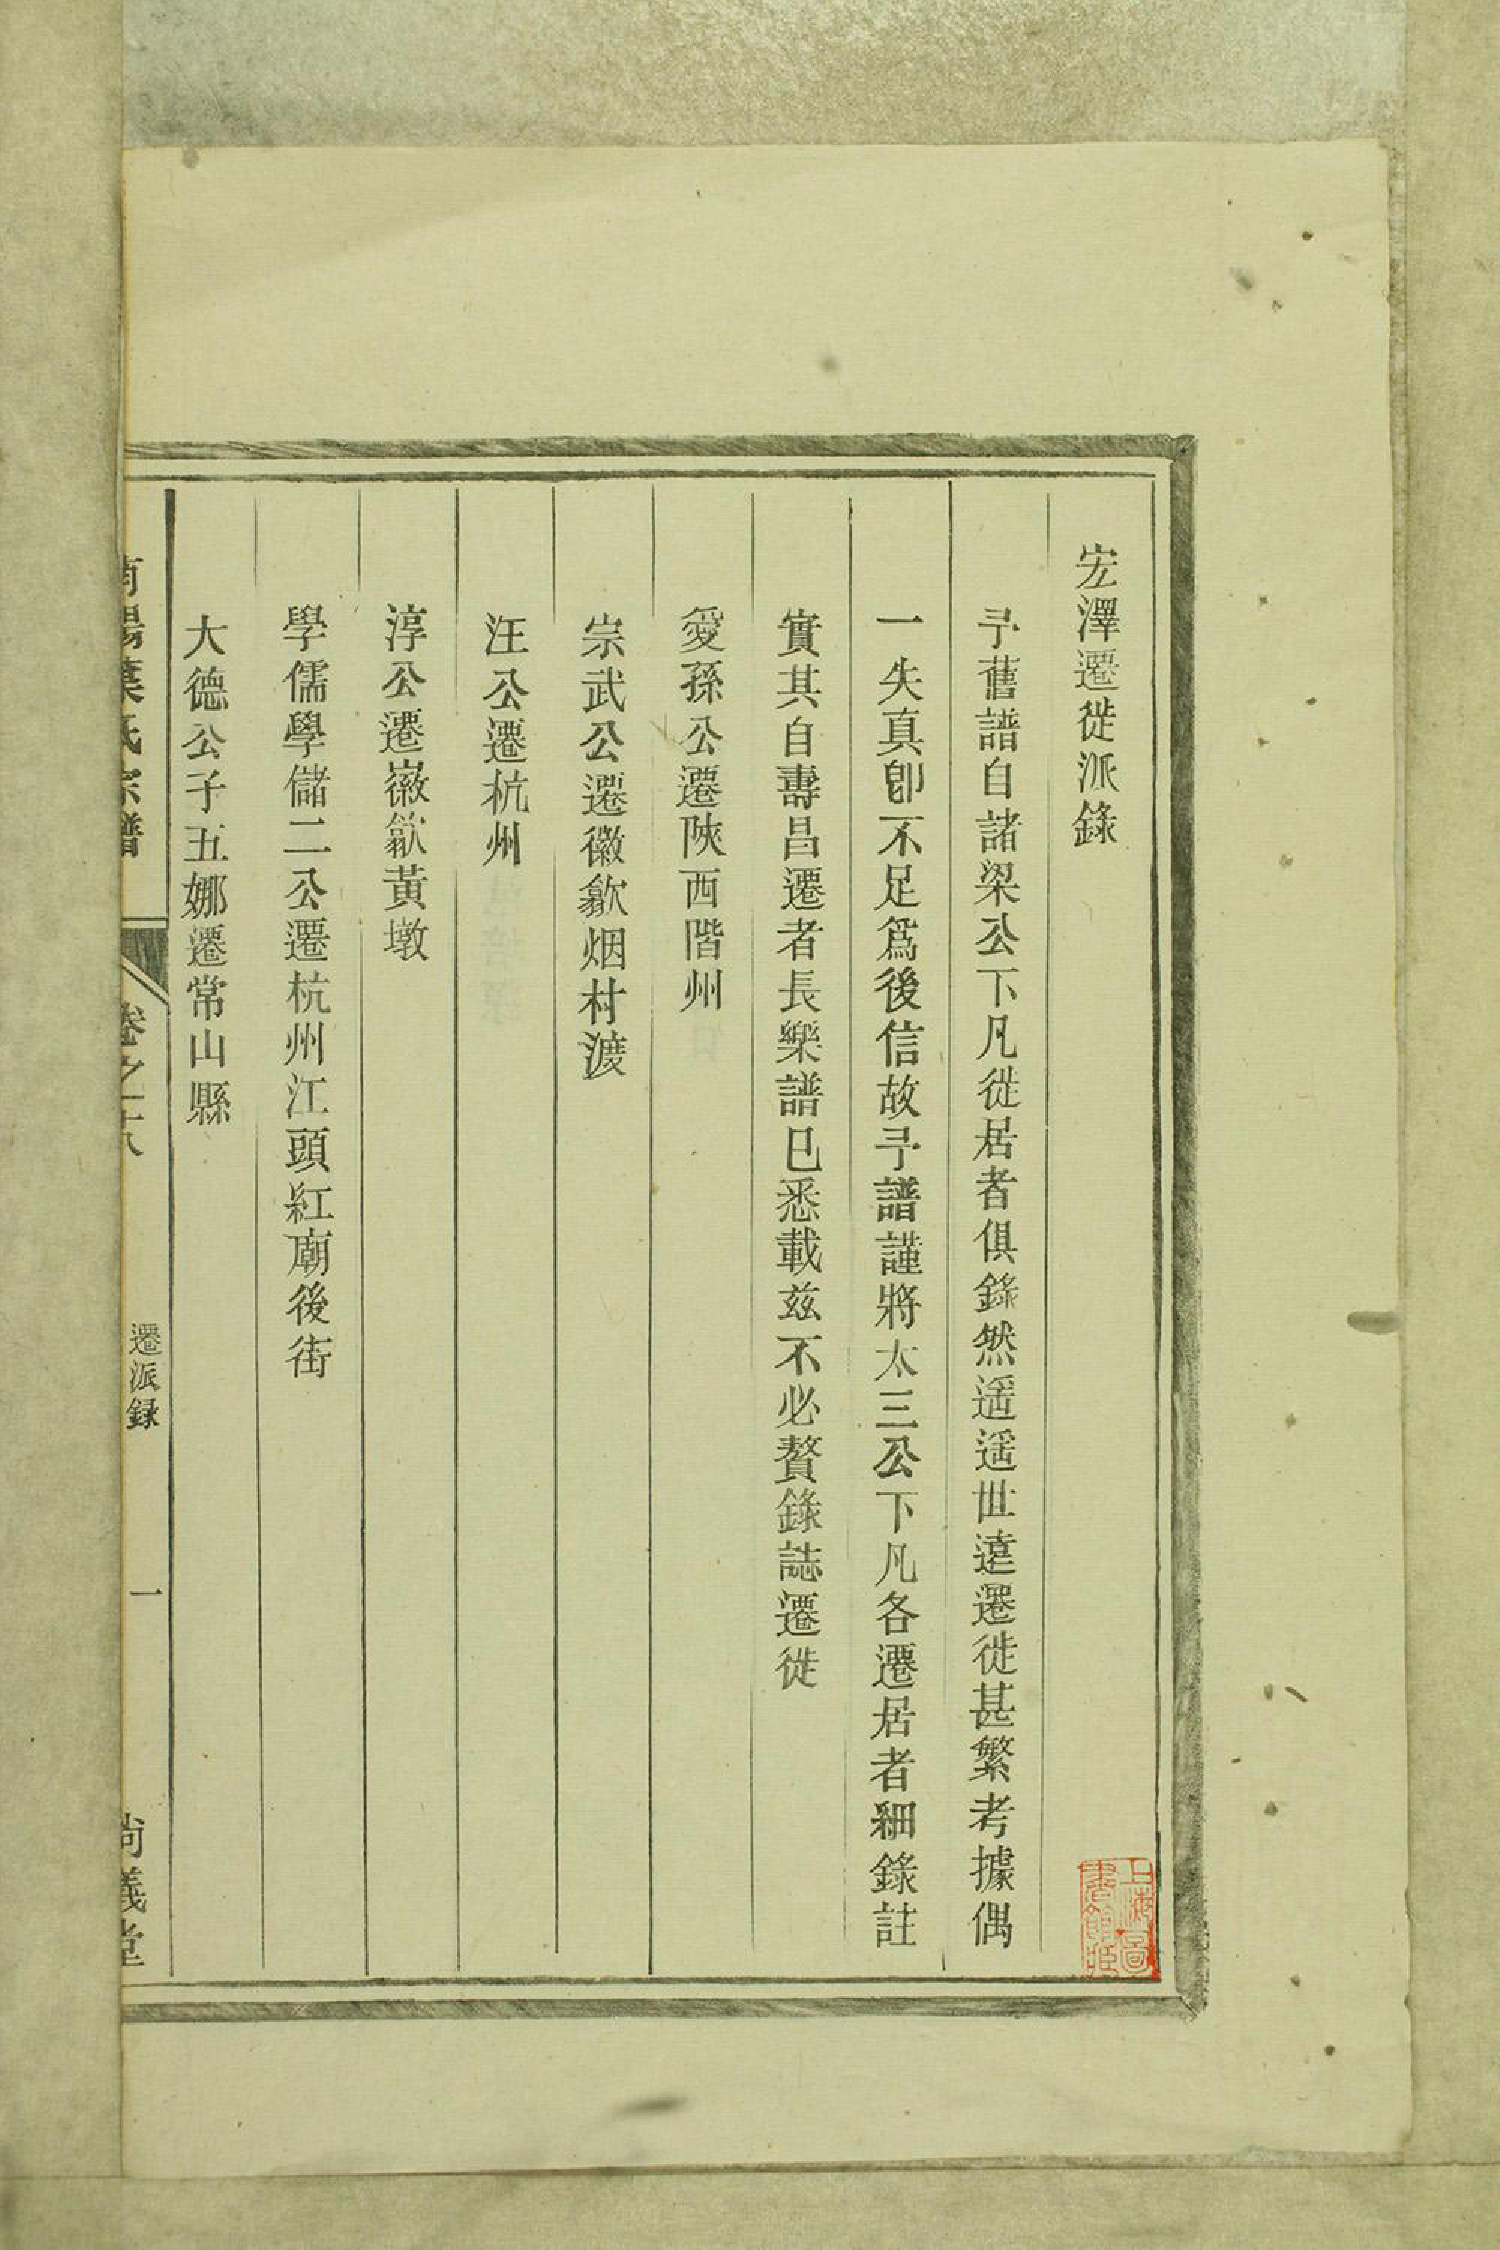 宏澤遷徙派錄
予舊譜自諸梁公下凡徙居者俱錄然遥遥世遠遷徙甚繁考據偶
一失真卽不足爲後信故予譜謹將太三公下凡各遷居者細錄註
實其自壽昌遷者長樂譜已悉載兹不必贅錄誌遷徙
愛孫公遷陝西階州
崇武公遷徽歙烟村渡
汪公遷杭州
淳公遷徽歙黃墩
學儒學儲二公遷杭州江頭紅廟後街
大德公子五娜遷常山縣
南陽葉氏宗譜
卷之十八
遷派録
一
尚義堂
上海圖
書館藏